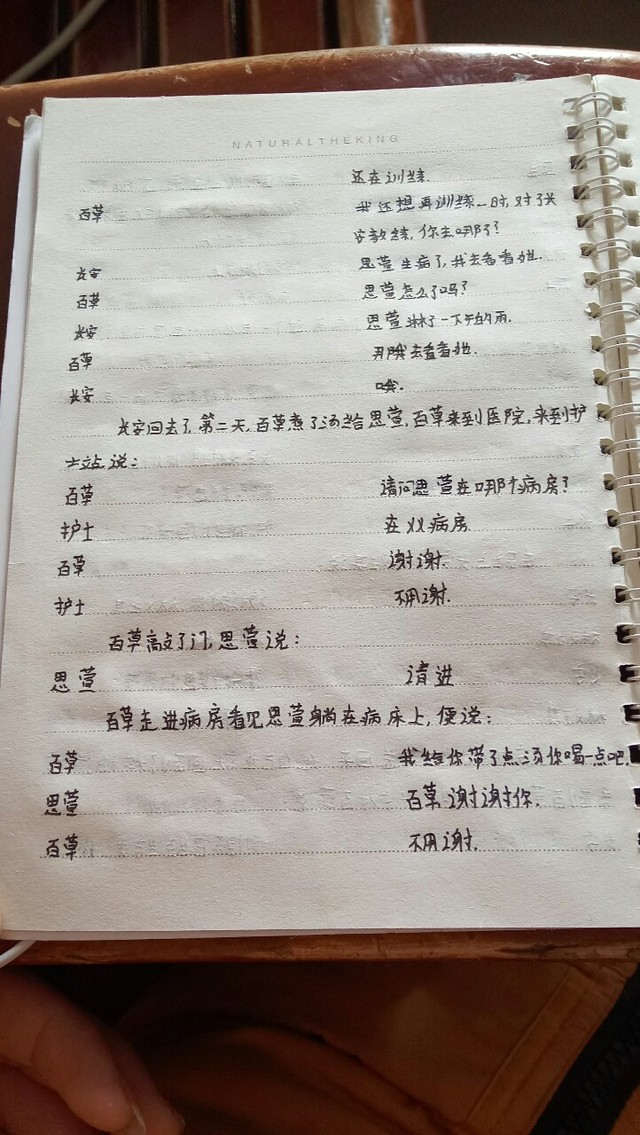 NATURALTHEKING
还在训练.
百草 我还想再训练一时, 对了长
安教练, 你去哪了?
长安 思萱生病了, 我去看看她.
百草 思萱怎么了吗?
长安 思萱淋了一下午的雨.
百草 那我去看看她.
长安 哦.
长安回去了, 第二天, 百草煮了汤给思萱, 百草来到医院, 来到护
士站说:
百草 请问思萱在哪个病房?
护士 在XX病房
百草 谢谢.
护士 不用谢.
百草高攴了门, 思萱说:
思萱 请进
百草走进病房看见思萱躺在病床上, 便说:
百草 我给你带了点汤你喝一点吧.
思萱 百草谢谢你.
百草 不用谢.